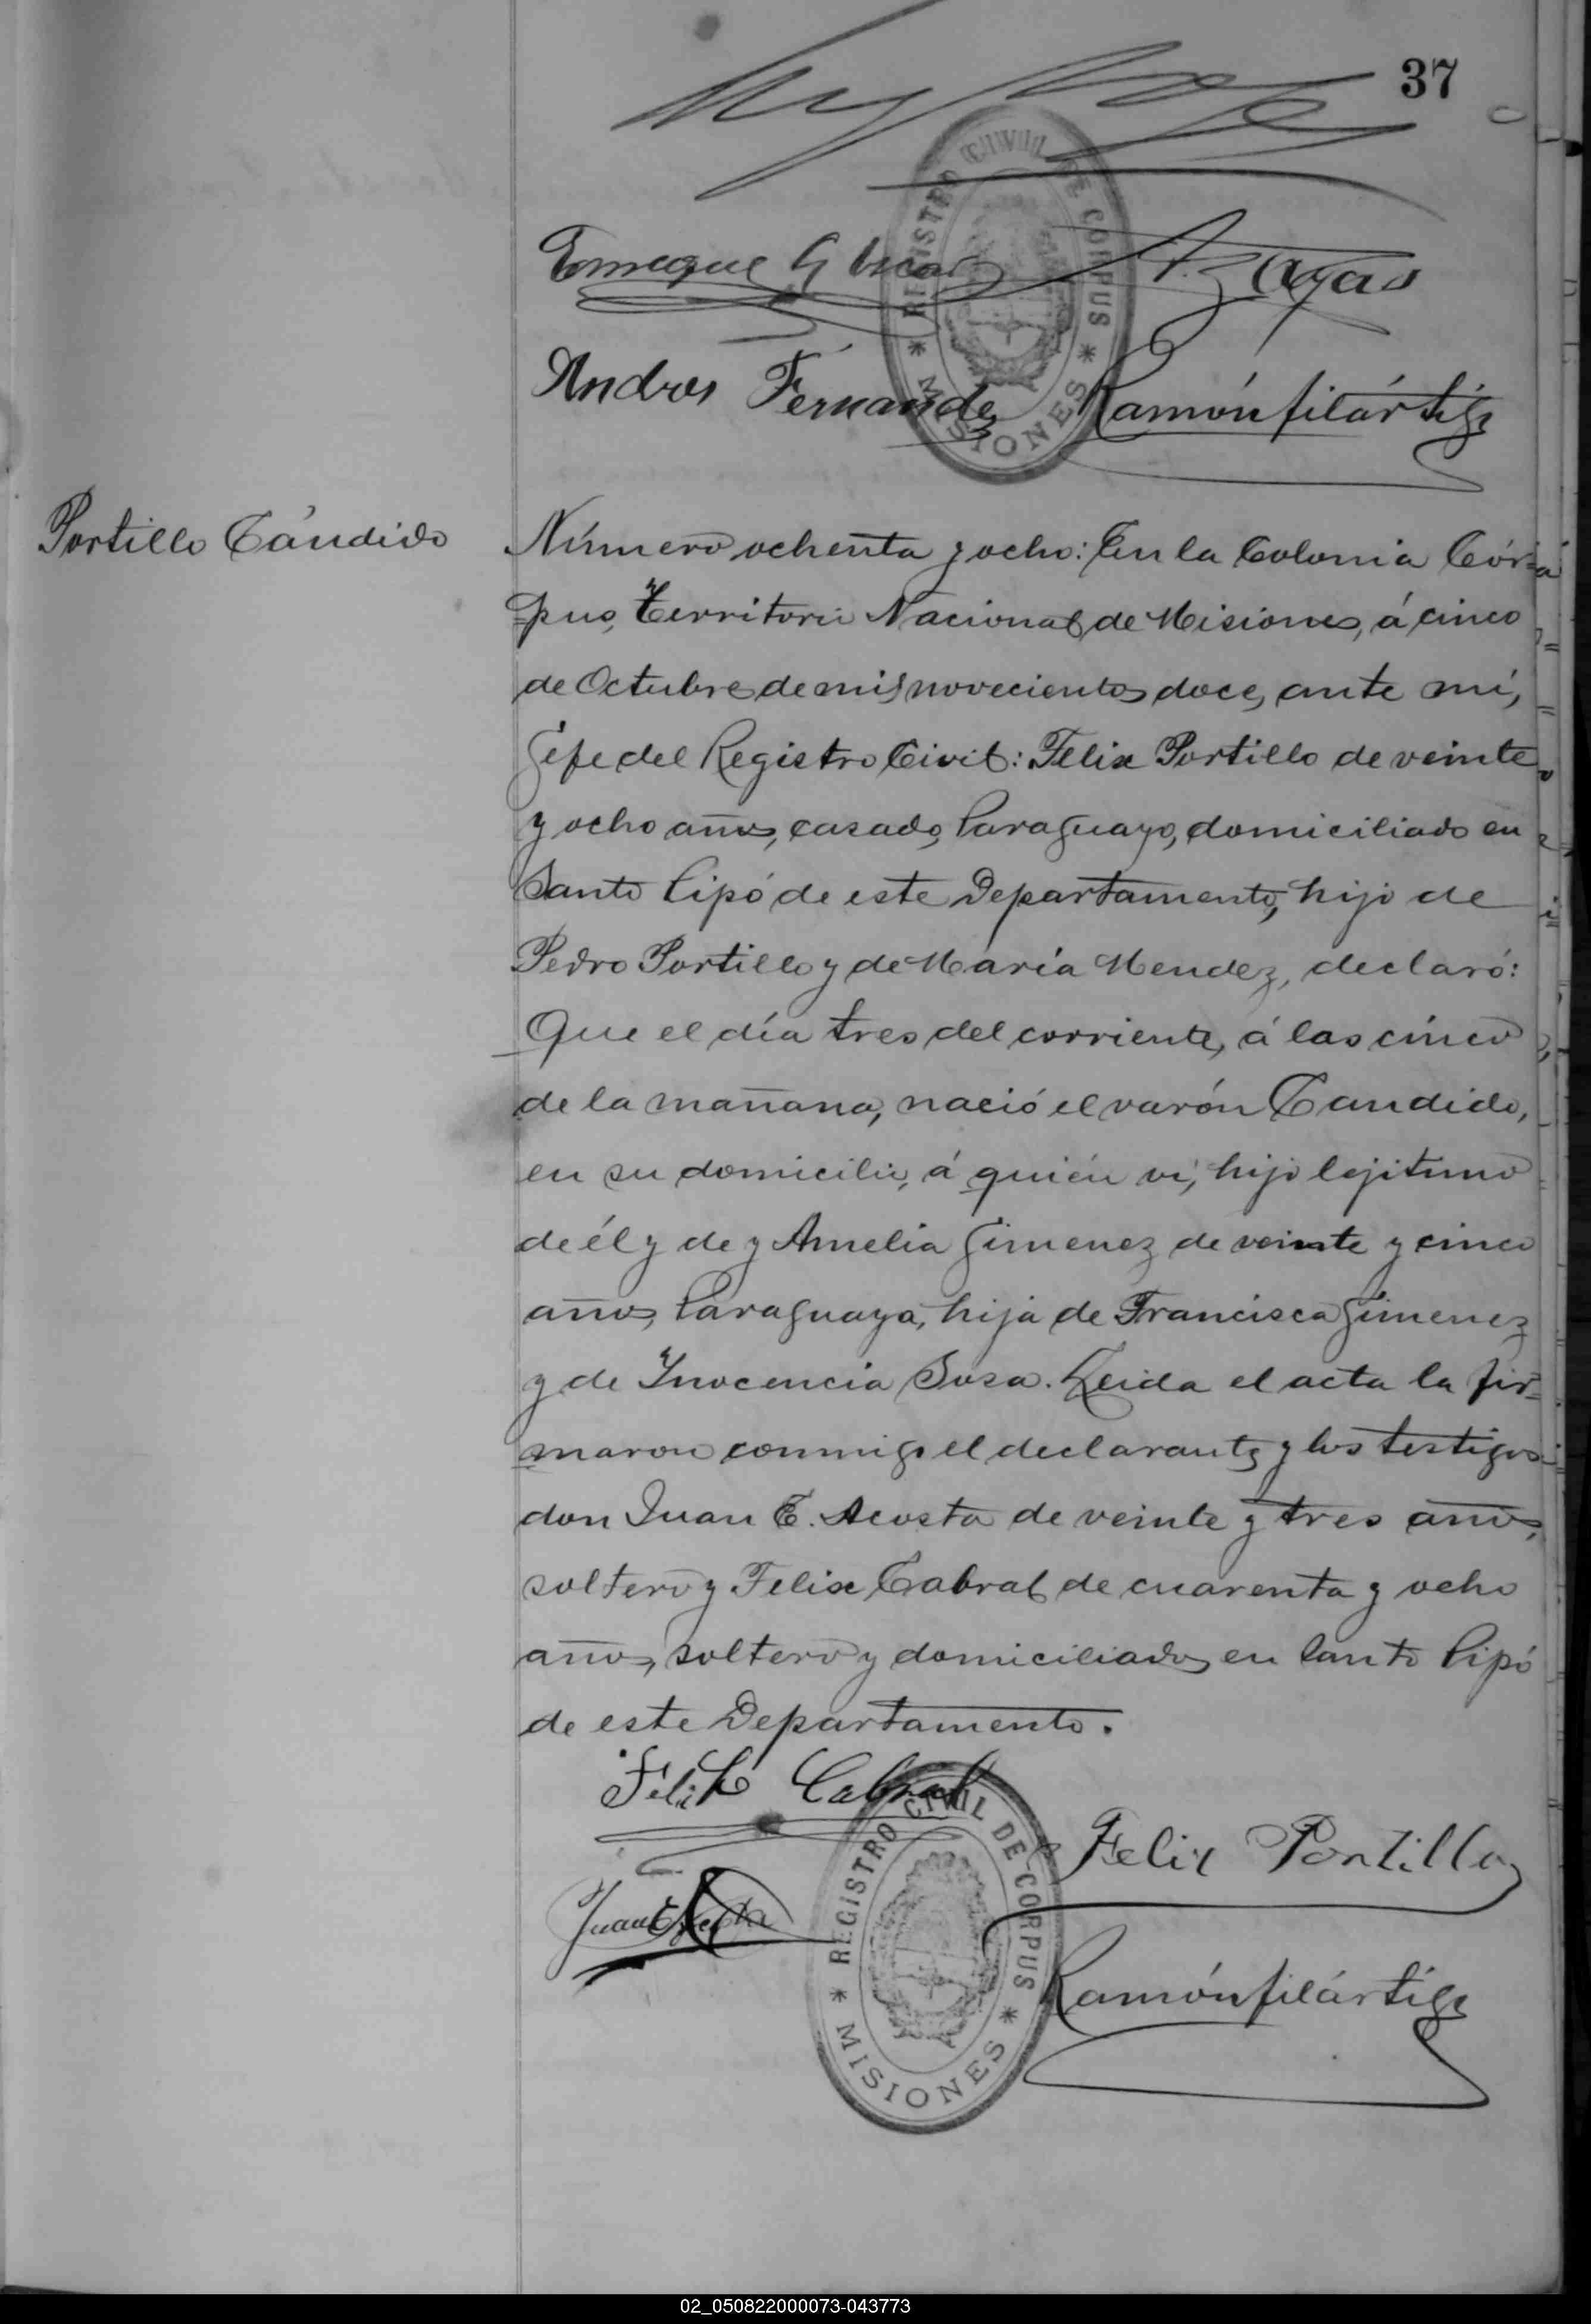 37
REGISTRO CIVIL DE CORPUS
* MISIONES *
Andres Fernandez
Ramón filártiga
Portillo Cándido
Número ochenta y ocho: En la Colonia Cór=
=pus, Territorio Nacional de Misiones, á cinco
de Octubre de mil novecientos doce, ante mí,
Gefe del Registro Civil: Felix Portillo de veinte
y ocho años, casado, Paraguayo, domiciliado en
Santo Pipó de este Departamento, hijo de
Pedro Portillo y de María Mendez, declaró:
Que el día tres del corriente, á las cinco
de la mañana, nació el varón Candido,
en su domicilio, á quién ví, hijo lejitimo
de él y de y Amelia Gimenez de veinte y cinco
años, Paraguaya, hija de Francisca Gimenez
y de Inocencia Sosa. Leida el acta la fir=
maron conmigo el declarante y los testigos
don Juan E. Acosta de veinte y tres años,
soltero y Felix Cabral de cuarenta y ocho
años, soltero y domiciliados en Santo Pipó
de este Departamento.
Felix Cabral
REGISTRO CIVIL DE CORPUS
* MISIONES *
Felix Portillo
Juan E Acosta
Ramón filártiga
02_050822000073-043773